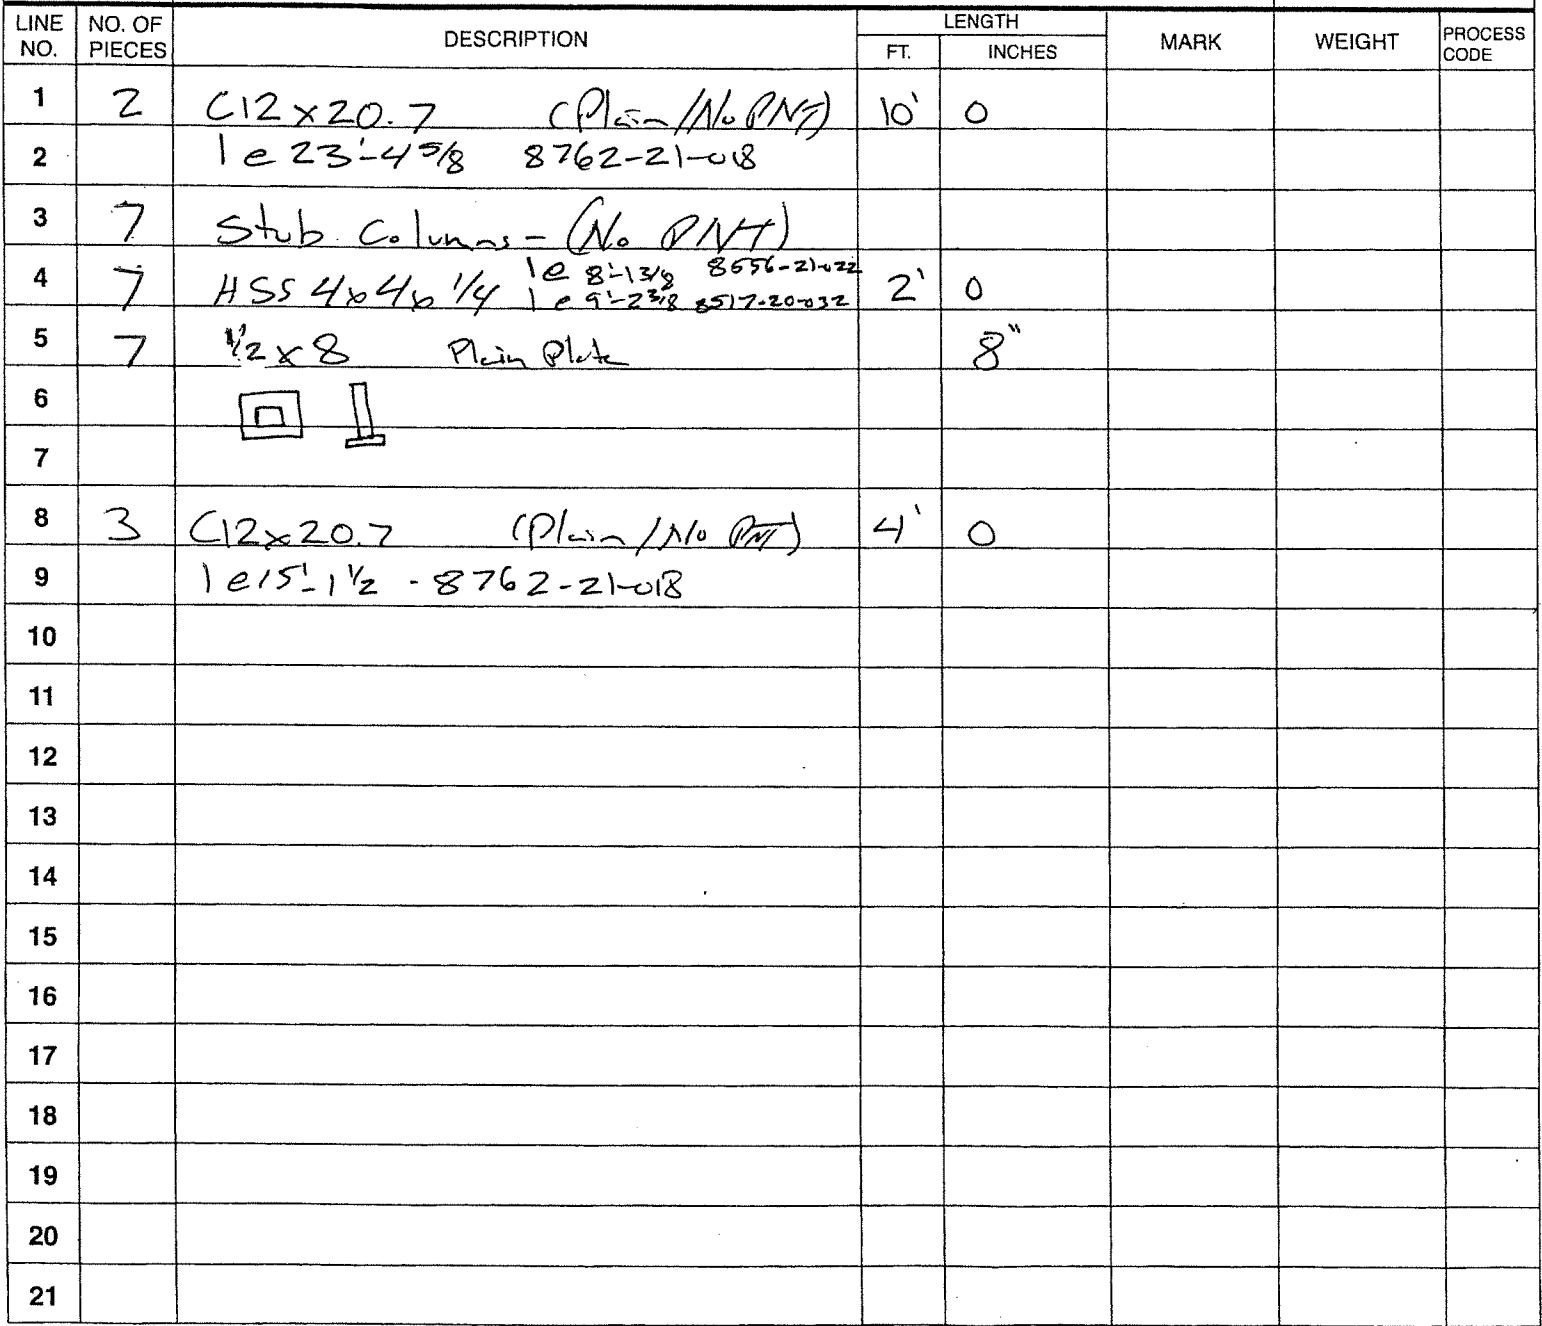 LINE NO. NO. OF PIECES DESCRIPTION LENGTH FT. INCHES MARK WEIGHT PROCESS CODE
1 2 C12x20.7 (Plain/No PNT) 10' 0
2 1 @ 23'-4 5/8 8762-21-018
3 7 Stub Columns - (No PNT)
4 7 HSS 4x4x 1/4 1 @ 8'-1 3/8 8656-21-022 2' 0
1 @ 9'-2 3/8 8517-20-032
5 7 1/2 x 8 Plain Plate 8"
6
7
8 3 C12x20.7 (Plain/No PNT) 4' 0
9 1 @ 15'-1 1/2 - 8762-21-018
10
11
12
13
14
15
16
17
18
19
20
21